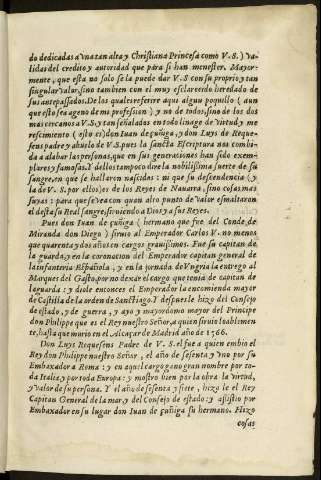 do dedicadas a vna tan alta y Christiana Princesa como V.S.) va-
lidas del credito y autoridad que para si han menester. Mayor-
mente, que esta no solo se la puede dar V.S con su proprio y tan
singular valor, sino tambien con el muy esclarecido heredado de
sus antepassados. De los quales referire aqui alguu poquillo (aun
que esto sea ageno de mi profession) y no de todos, sino de los dos
mas cercanos a V.S. y tan señalados en todo linage de virtud, y me
rescimiento (esto es) don Iuan de çuñiga, y don Luys de Reque-
sens padre y abuelo de V.S. pues la sancta Escriptura nos combi-
da a alabar las personas, que en sus generaciones han sido exem-
plares y famosas. Y dellos tampoco dire la nobilissima suerte de su
sangre, en que se hallaron nascidos: ni que su descendencia (y
la de V.S. por ellos) es de los Reyes de Nauarra, sino cosas mas
suyas: para que se vea con quan alto punto de valor esmaltaron
el desta su Real sangre, siruiendo a Dios y a sus Reyes.
Pues don Iuan de çuñiga (hermano que fue del Conde de
Miranda don Diego) siruio al Emperador Carlos V. no menos
que quarenta y dos años en cargos grauissimos. Fue su capitan de
la guarda, y en la coronation del Emperador capitan general de
la infanteria Española, y en la jornada de Vngria la entrego al
Marques del Gasto, por no dexar el cargo que tenia de capitan de
la guarda: y diole entonces el Emperador la encomienda mayor
de Castilla de la orden de Sanctiago. Y despues le hizo del Consejo
de estado, y de guerra, y ayo y mayordomo mayor del Principe
don Philippe que es el Rey nuestro Señor, a quien siruio loablemen-
te, hasta que murio en el Alcaçar de Madrid año de 1546.
Don Luys Requesens Padre de V.S. el fue a quien embio el
Rey don Philippe nuestro Señor, el año de sesenta y vno por su
Embaxador a Roma: y en aquel cargo gano gran nombre por to-
da Italia, y por toda Europa: y mostro bien por la obra la virtud,
y valor de su persona. Y el año de sesenta y siete, hizo le el Rey
Capitan General de la mar, y del Consejo de estado: y assistio por
Embaxador en su lugar don Iuan de çuñiga su hermano. Hizo
cosas